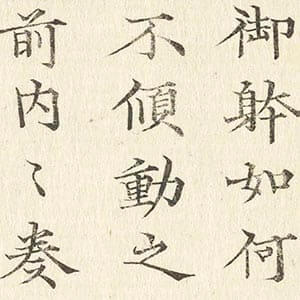 御躰如何
不傾動之
前内〻奏